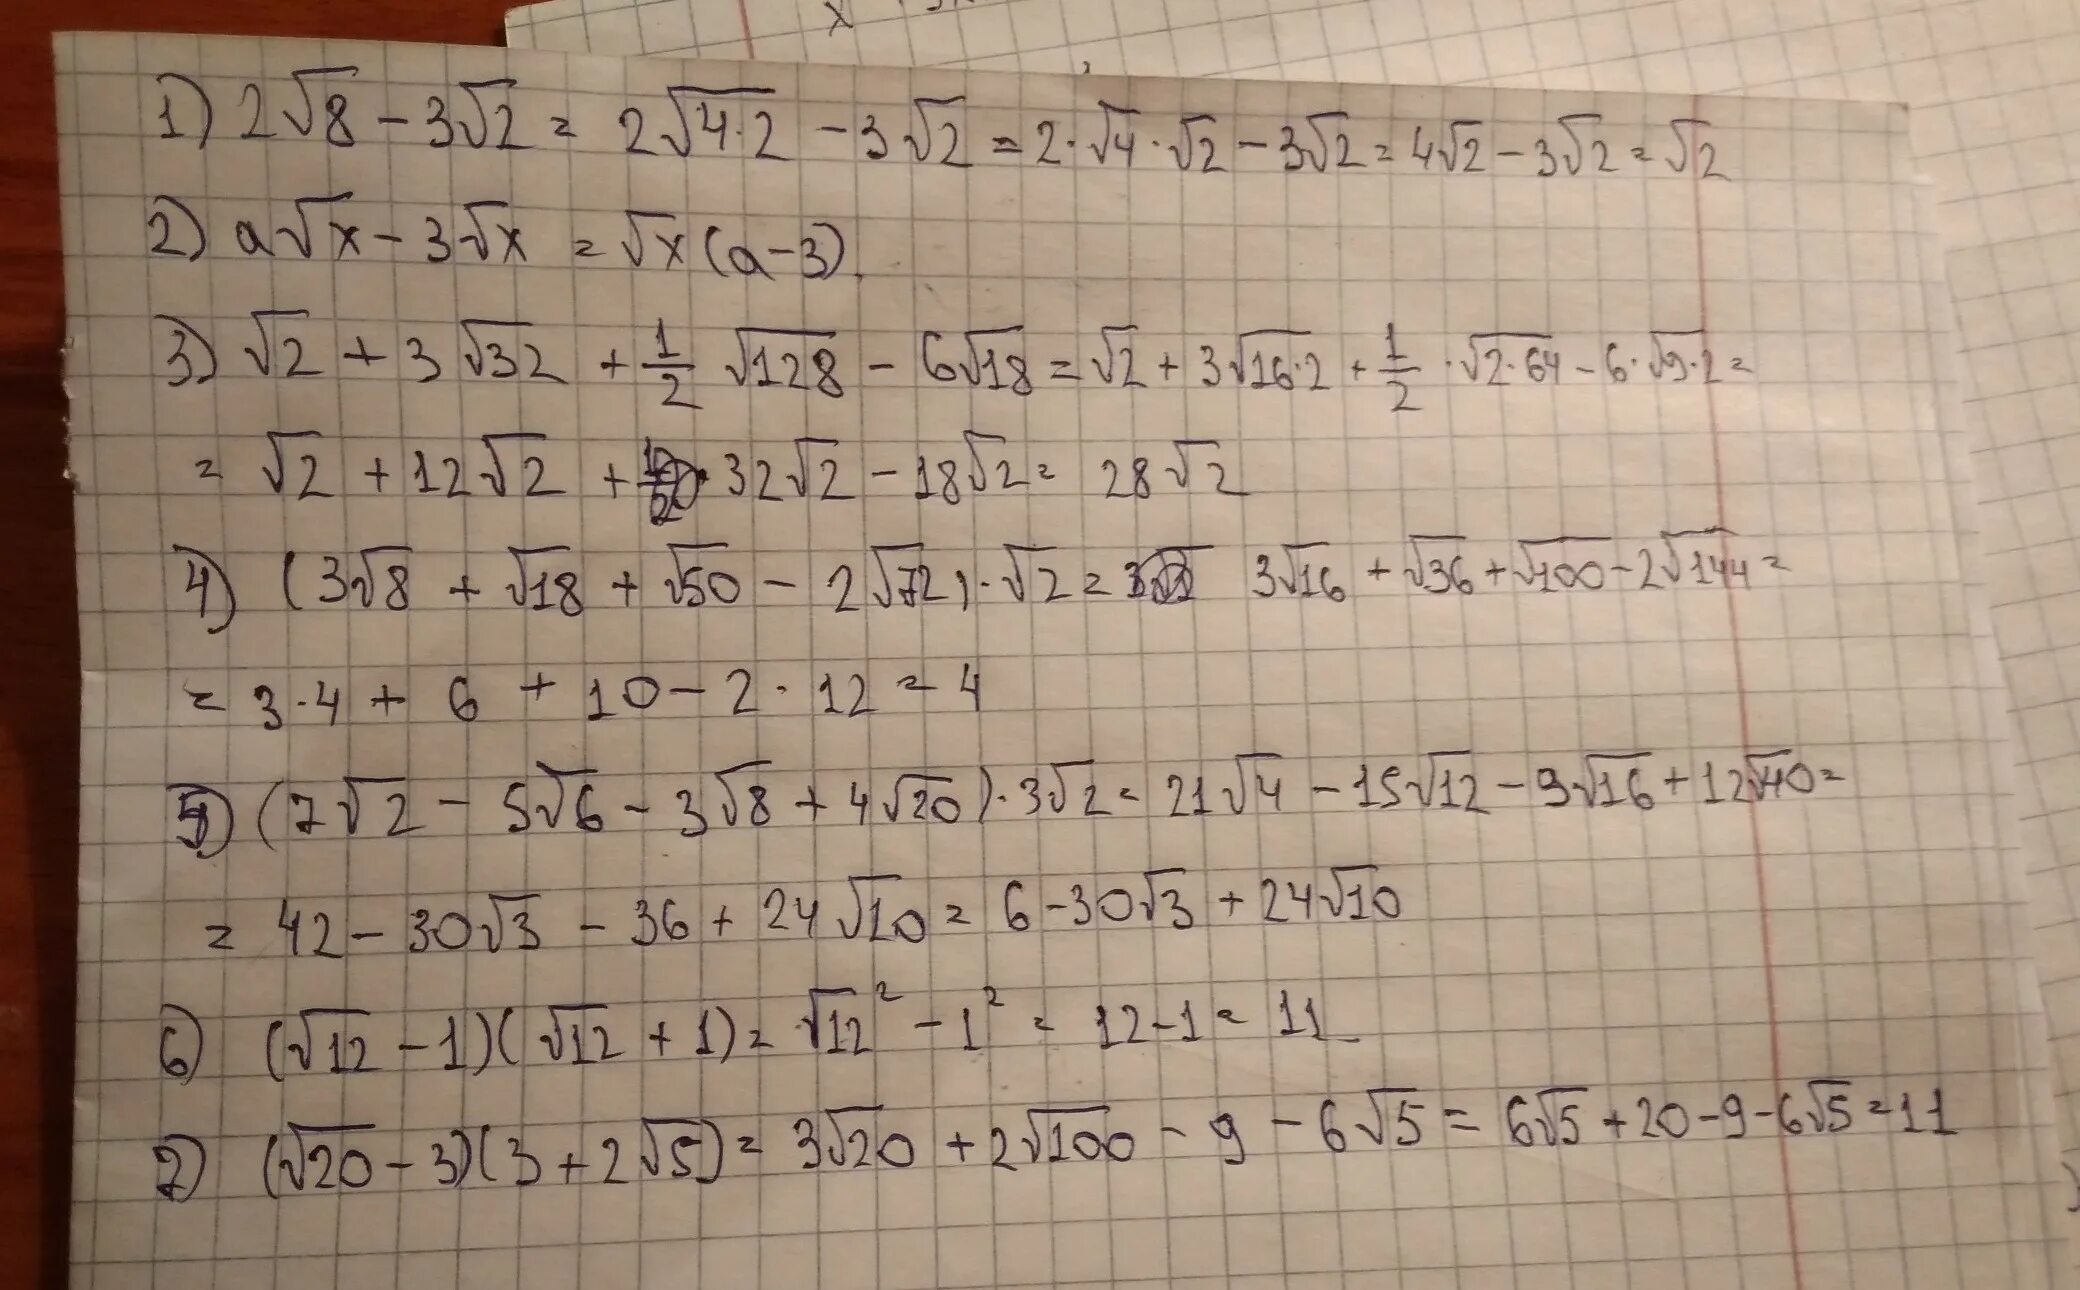 1) 2√8 - 3√2 = 2√4·2 - 3√2 = 2·√4·√2 - 3√2 = 4√2 - 3√2 = √2
2) a√x - 3√x = √x(a-3).
3) √2 + 3√32 + 1/2 √128 - 6√18 = √2 + 3√16·2 + 1/2 ·√2·64 - 6·√9·2 =
= √2 + 12√2 + 32√2 - 18√2 = 28√2
4) (3√8 + √18 + √50 - 2√72)·√2 = 3√16 + √36 + √100 - 2√144 =
= 3·4 + 6 + 10 - 2·12 = 4
5) (7√2 - 5√6 - 3√8 + 4√20)·3√2 = 21√4 - 15√12 - 9√16 + 12√40 =
= 42 - 30√3 - 36 + 24√10 = 6 - 30√3 + 24√10
6) (√12 - 1)(√12 + 1) = √12² - 1² = 12 - 1 = 11
2) (√20 - 3)(3 + 2√5) = 3√20 + 2√100 - 9 - 6√5 = 6√5 + 20 - 9 - 6√5 = 11